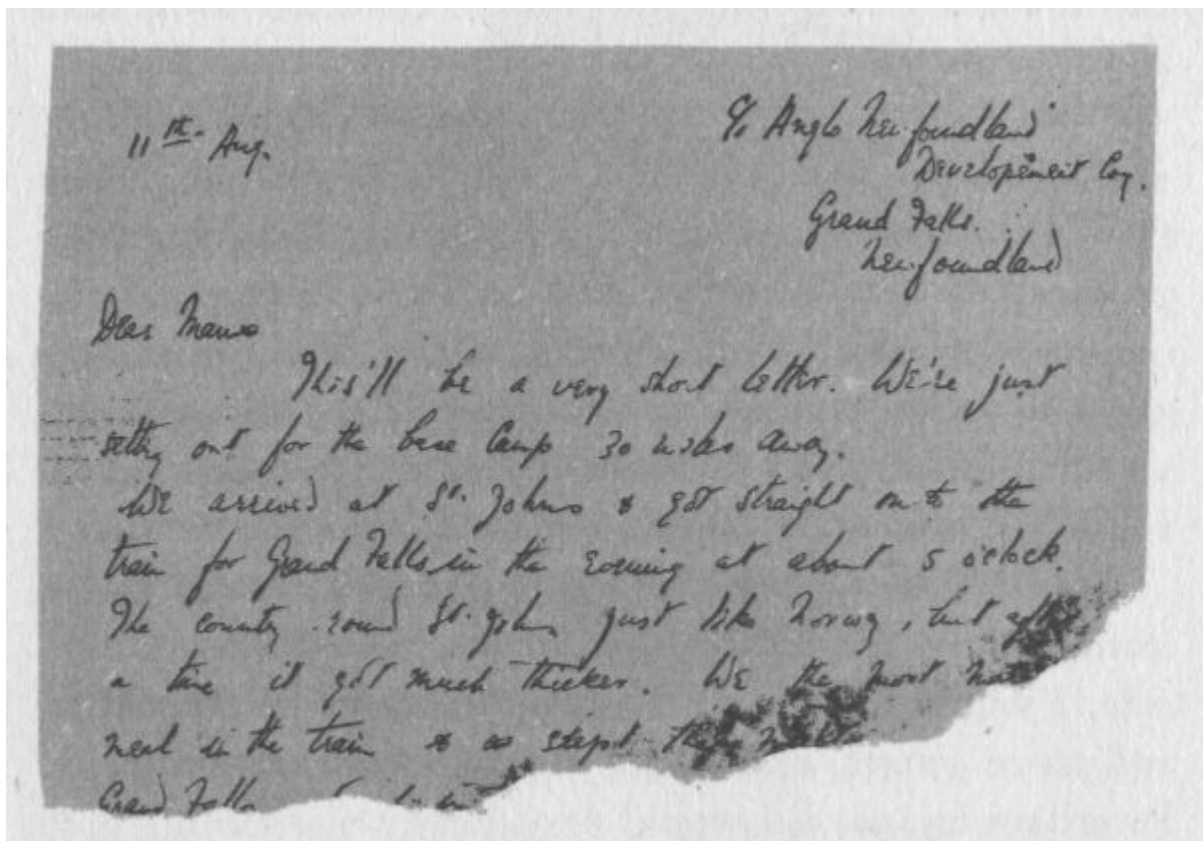 11th Aug.
C/o Anglo Newfoundland
Developement Coy.
Grand Falls.
Newfoundland
Dear Mama
This'll be a very short letter. We're just
setting out for the base camp 30 miles away.
We arrived at St. Johns & got straight on to the
train for Grand Falls in the evening at about 5 o'clock.
The country round St. Johns just like Norway, but after
a time it got much thicker. We the most
meal in the train & so slept the
Grand Falls